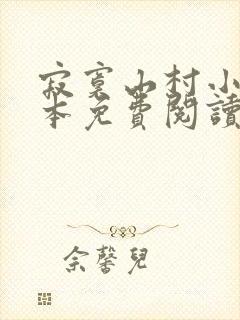 寂寞山村小
本免費閱讀
佘馨兒